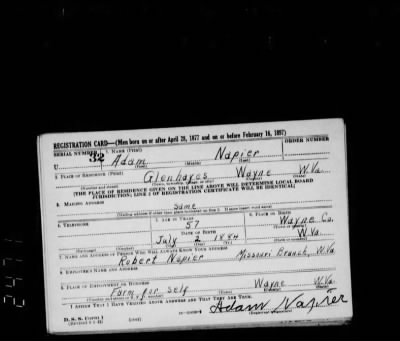 REGISTRATION CARD—(Men born on or after April 28, 1877 and on or before February 16, 1897)
SERIAL NUMBER 1. NAME (Print) ORDER NUMBER
U 32 Adam Napier
(First) (Middle) (Last)
2. PLACE OF RESIDENCE (Print)
Glenhayes Wayne W.Va.
(Number and street) (Town, township, village, or city) (County) (State)
[THE PLACE OF RESIDENCE GIVEN ON THE LINE ABOVE WILL DETERMINE LOCAL BOARD
JURISDICTION; LINE 2 OF REGISTRATION CERTIFICATE WILL BE IDENTICAL]
3. MAILING ADDRESS
Same
[Mailing address if other than place indicated on line 2. If same insert word same]
4. TELEPHONE 5. AGE IN YEARS 6. PLACE OF BIRTH
57 Wayne Co.
DATE OF BIRTH (Town or county)
July 2 1884 W.Va.
(Exchange) (Number) (Mo.) (Day) (Yr.) (State or country)
7. NAME AND ADDRESS OF PERSON WHO WILL ALWAYS KNOW YOUR ADDRESS
Robert Napier Missouri Branch, W.Va
8. EMPLOYER'S NAME AND ADDRESS
9. PLACE OF EMPLOYMENT OR BUSINESS
Farm for self Wayne W.Va.
(Number and street or R. F. D. number) (Town) (County) (State)
I AFFIRM THAT I HAVE VERIFIED ABOVE ANSWERS AND THAT THEY ARE TRUE.
D. S. S. Form 1 Adam Napier
(over) (Registrant's signature)
2471